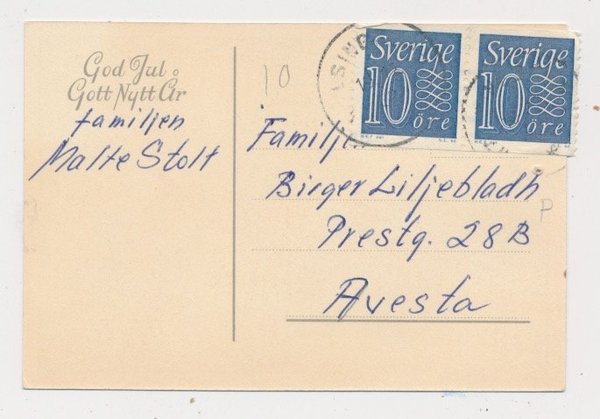 God Jul
Gott Nytt År
familjen
Malte Stolt
10
Sverige
10
öre
Sverige
10
öre
Familjen
Birger Liljebladh
Prestg. 28B
Avesta
P